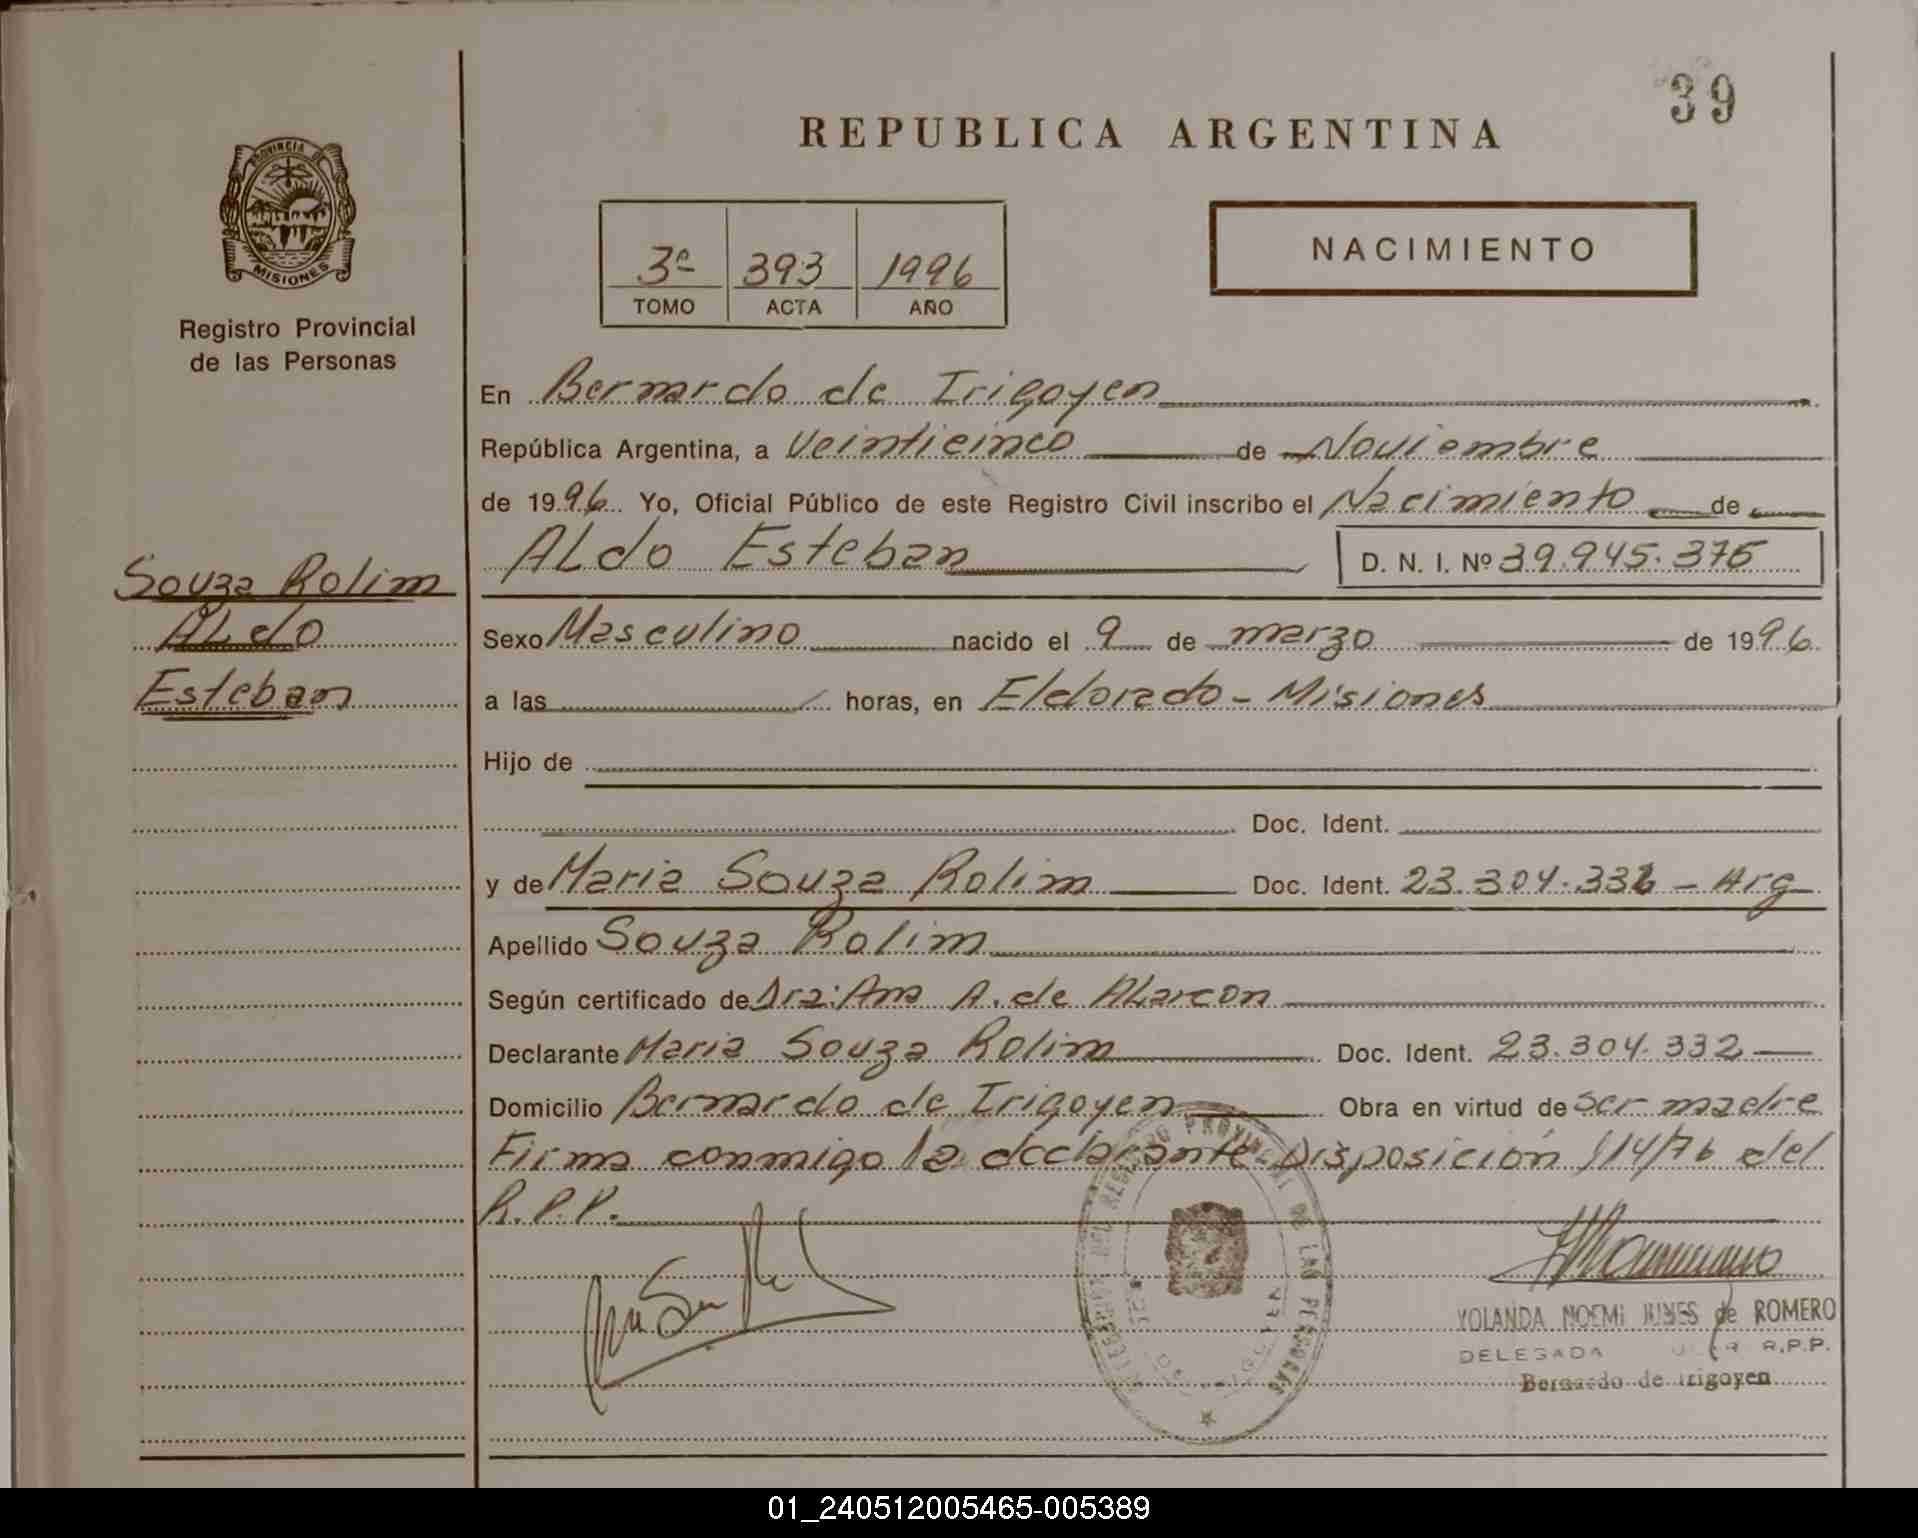 39
REPUBLICA ARGENTINA
PROVINCIA DE
MISIONES
Registro Provincial
de las Personas
3º 393 1996
TOMO ACTA AÑO
NACIMIENTO
En Bernardo de Irigoyen
República Argentina, a Veinticinco de Noviembre
de 1996 Yo, Oficial Público de este Registro Civil inscribo el Nacimiento de
Aldo Esteban D. N. I. Nº 39.945.376
Souza Rolim
Aldo
Esteban
Sexo Masculino nacido el 9 de marzo de 1996
a las horas, en Eldorado - Misiones
Hijo de
Doc. Ident.
y de Maria Souza Rolim Doc. Ident. 23.304.332 - Arg
Apellido Souza Rolim
Según certificado de Dra: Ana A. de Alarcon
Declarante Maria Souza Rolim Doc. Ident. 23.304.332
Domicilio Bernardo de Irigoyen Obra en virtud de ser madre
Firma conmigo la declarante Disposición 114/76 del
R.P.P.
REGISTRO PROVINCIAL DE LAS PERSONAS
YOLANDA NOEMI de ROMERO
DELEGADA R.P.P.
Bernardo de Irigoyen
01_240512005465-005389